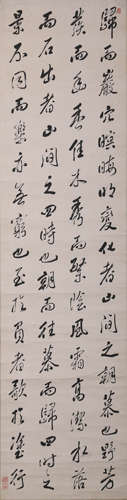 歸而巖穴暝晦明變化者山間之朝暮也野芳
發而幽香佳木秀而繁陰風霜高潔水落
而石出者山間之四時也朝而往暮而歸四時之
景不同而樂亦無窮也至於負者歌於塗行